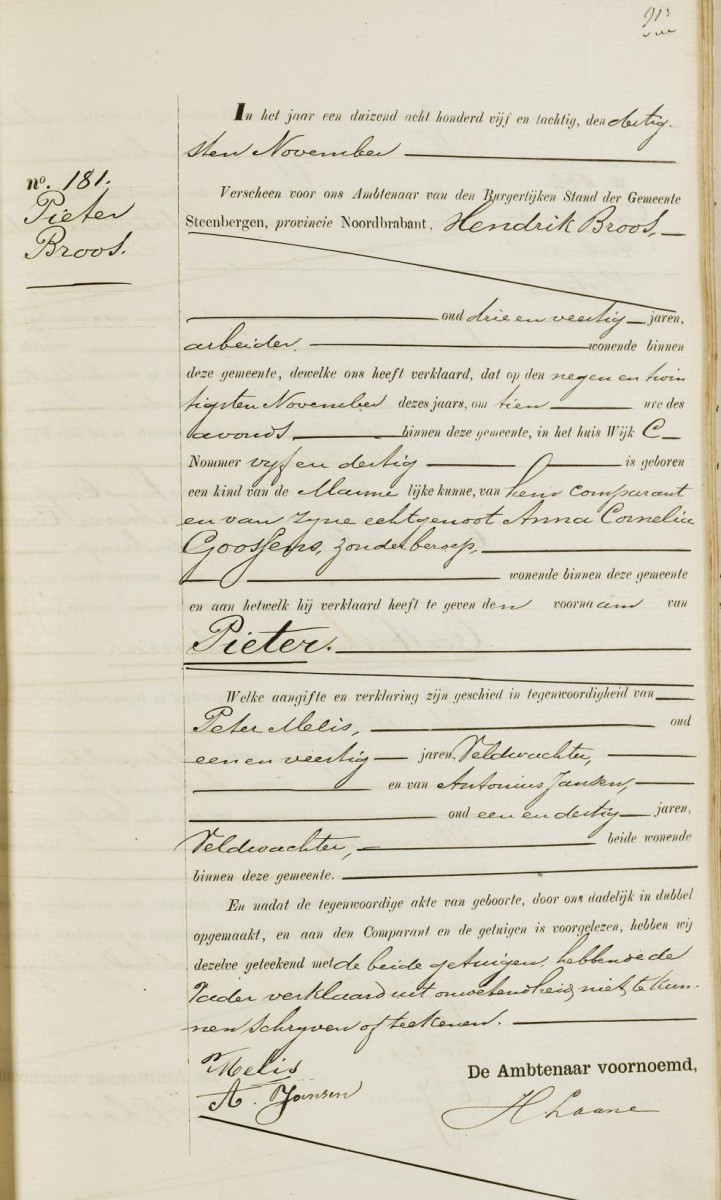 no. 181.
Pieter
Broos.
In het jaar een duizend acht honderd vijf en tachtig, den dertig-
sten November
Verscheen voor ons Ambtenaar van den Burgerlijken Stand der Gemeente
Steenbergen, provincie Noordbrabant, Hendrik Broos,
oud drie en veertig jaren,
arbeider. wonende binnen
deze gemeente, dewelke ons heeft verklaard, dat op den negen en twin
tigsten November dezes jaars, om tien ure des
avonds binnen deze gemeente, in het huis Wijk C
Nommer vyf en dertig is geboren
een kind van de Manne lijke kunne, van hem comparant
en van zyne echtgenoot Anna Cornelia
Goossens, zonder beroep,
wonende binnen deze gemeente
en aan hetwelk hij verklaard heeft te geven den voornaam van
Pieter.
Welke aangifte en verklaring zijn geschied in tegenwoordigheid van
Peter Melis, oud
een en veertig jaren, Veldwachter,
en van Antonius Jansen,
oud een en dertig jaren,
Veldwachter, beide wonende
binnen deze gemeente.
En nadat de tegenwoordige akte van geboorte, door ons dadelijk in dubbel
opgemaakt, en aan den Comparant en de getuigen is voorgelezen, hebben wij
dezelve geteekend met de beide getuigen, hebbende de
Vader verklaard uit onwetendheid niet te kun-
nen schryven of teekenen.
Melis
A. Jansen
De Ambtenaar voornoemd,
H Laane